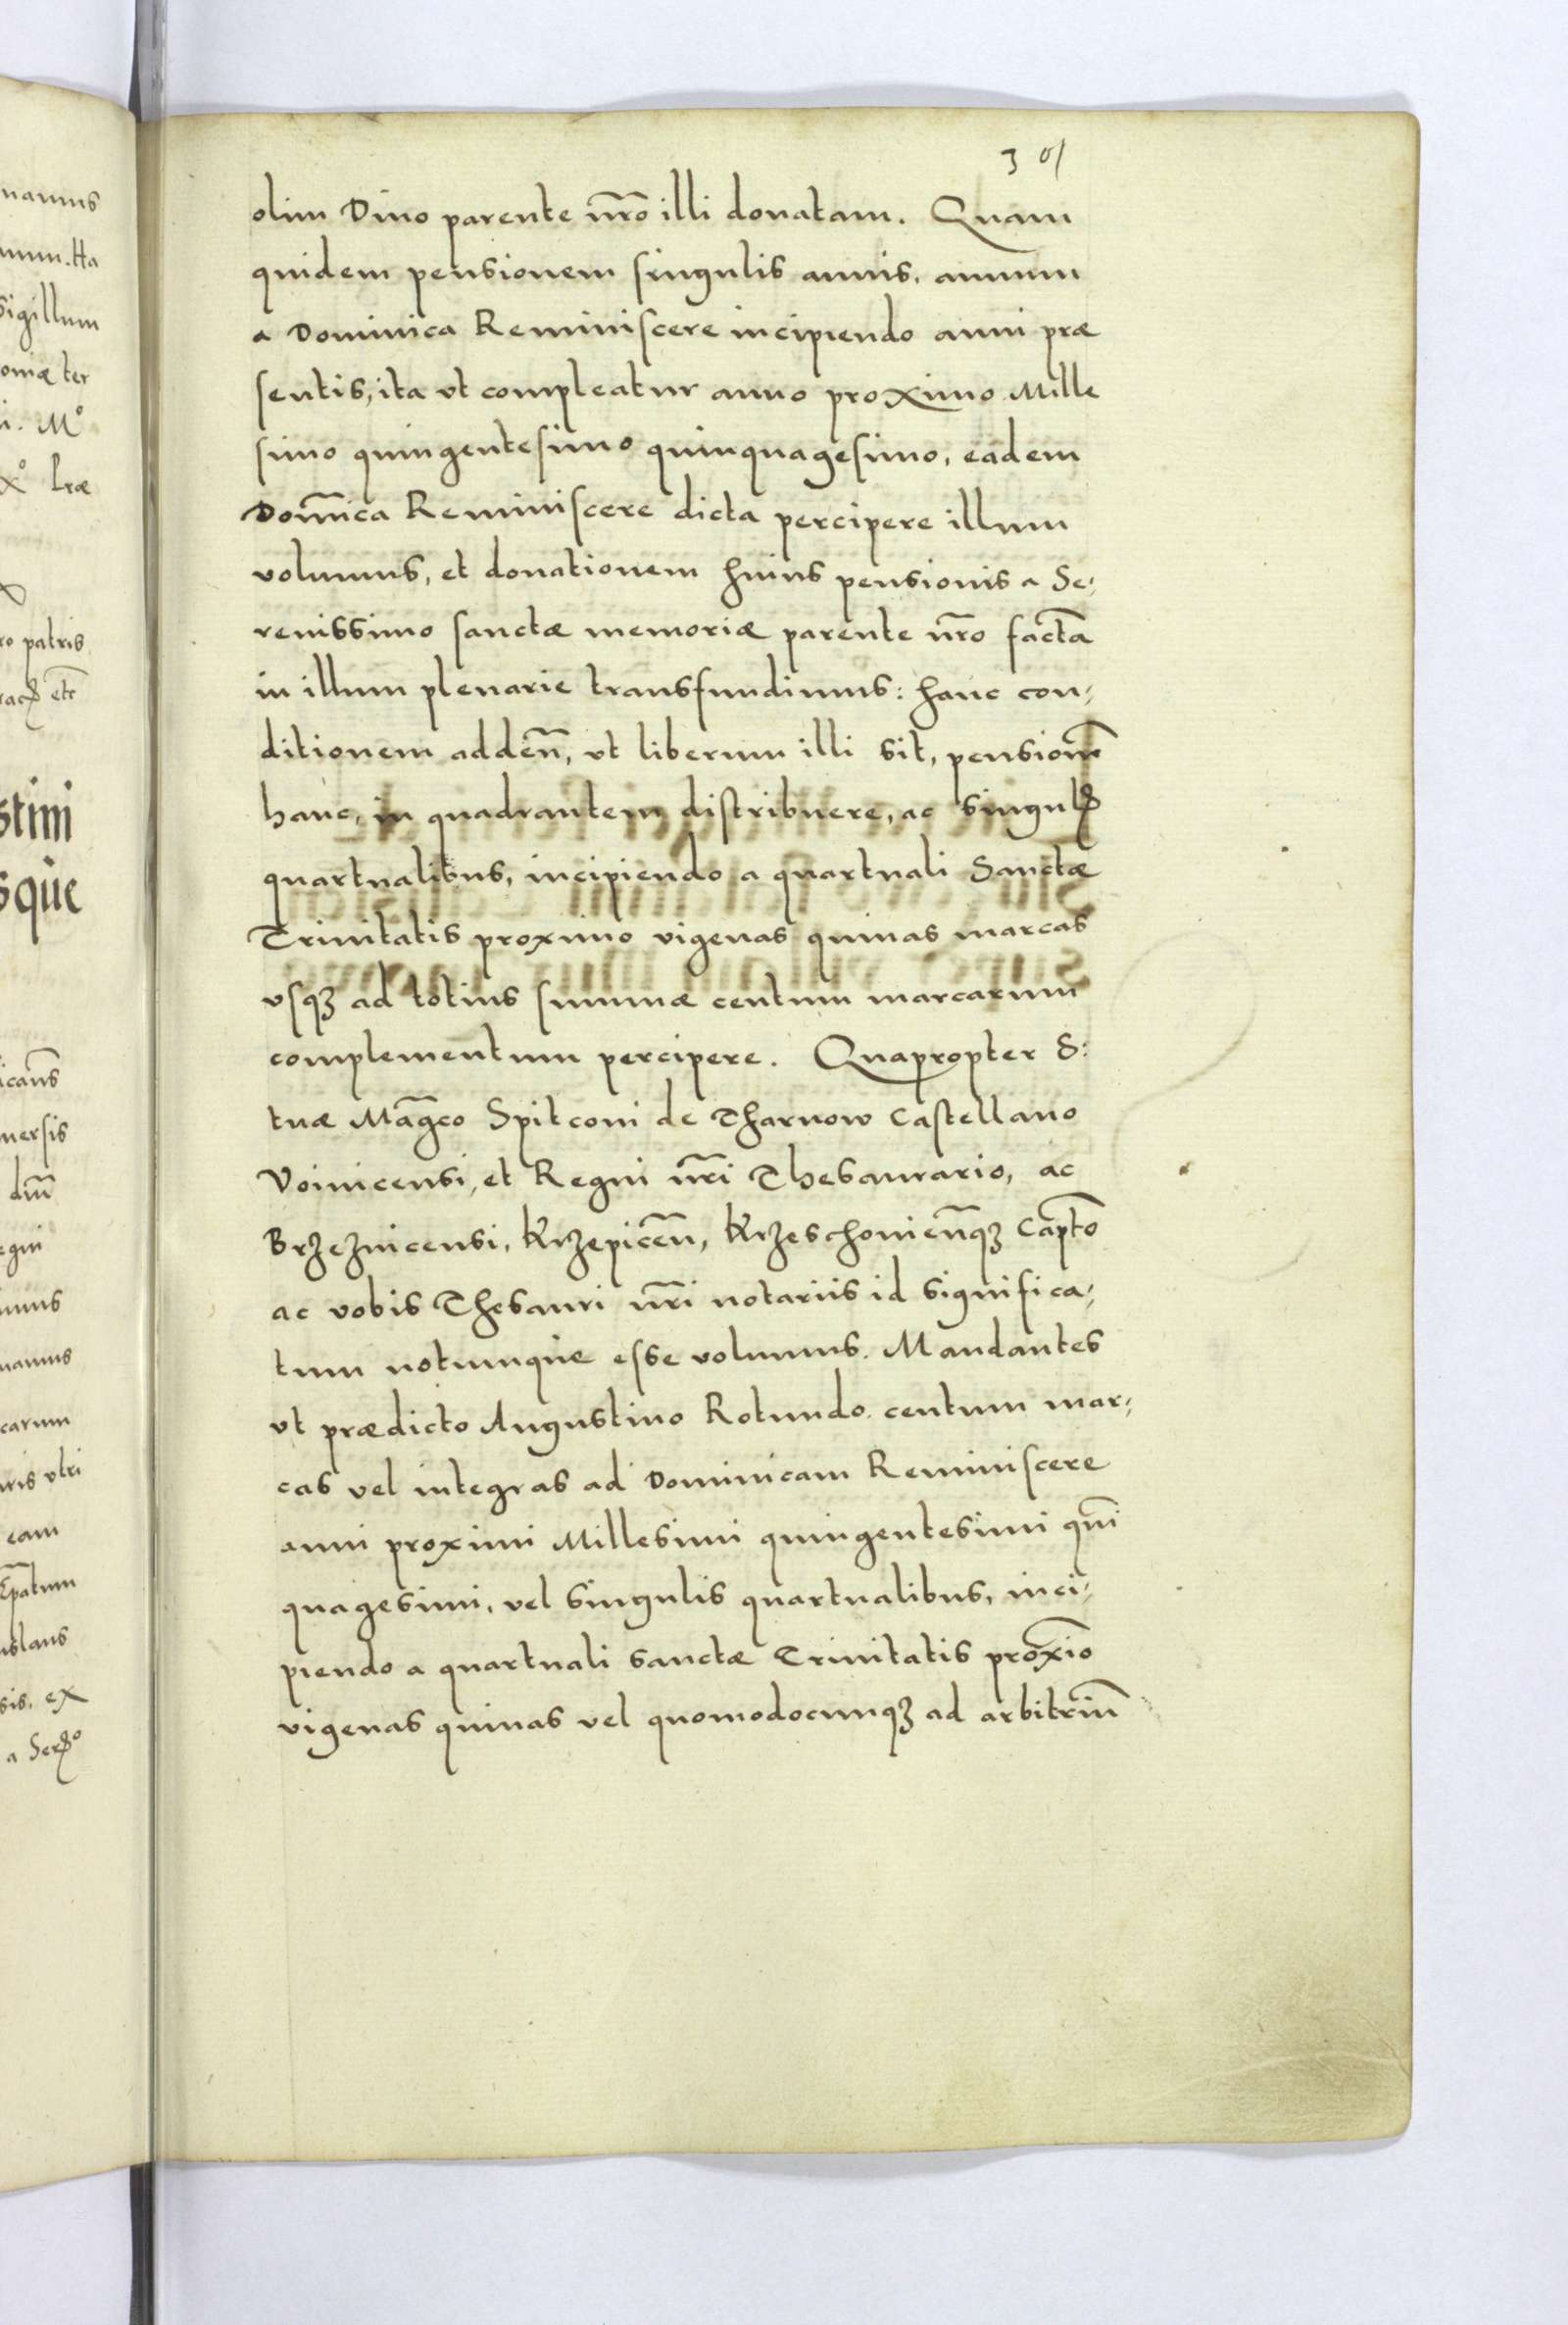 301
olim Diuo parente nr̃o illi donatam. Quam
quidem pensionem singulis annis, annum
a Dominica Reminiscere incipiendo anni præ
sentis, ita vt compleatur anno proximo Mille
simo quingentesimo quinquagesimo, eadem
Domĩca Reminiscere dicta percipere illum
volumus, et donationem huius pensionis a Se,
renissimo sanctæ memoriæ parente nr̃o factã
in illum plenarie transfundimus: hanc con,
ditionem addeñ, vt liberum illi sit, pensionẽ
hanc, in quadrantem distribuere, ac singul
quartualibus, incipiendo a quartuali Sanctæ
Trinitatis proximo vigenas quinas marcas
vsqꝫ ad totius summæ centum marcarum
complementum percipere. Quapropter S:
tuæ Mag̃co Spitconi de Tharnow Castellano
Voinicensi, et Regni nr̃i Thesaurario, ac
Brzeznicensi, Krzepiceñ, Krzeschonieñqꝫ Capt̃o
ac vobis Thesauri nr̃i notariis id significa,
tum notumque esse volumus. Mandantes
vt prædicto Augustino Rotundo centum mar,
cas vel integras ad Dominicam Reminiscere
anni proximi Millesimi quingentesimi quĩ
quagesimi, vel singulis quartualibus, inci,
piendo a quartuali sanctæ Trinitatis proxĩo
vigenas quinas vel quomodocunqꝫ ad arbitriũ
namus
Sigillum
oniæ ter
i. M°
x° Lræ
ro patris
stini
sque
icans
uersis
egni
imus
namus
carum
uris vtri
eam
patum
nslans
sis. ex